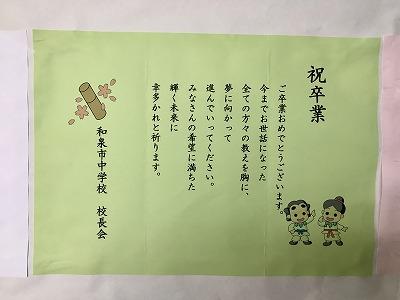 祝卒業
ご卒業おめでとうございます。
今までお世話になった
全ての方々の教えを胸に、
夢に向かって
進んでいってください。
みなさんの希望に満ちた
輝く未来に
幸多かれと祈ります。
和泉市中学校　校長会